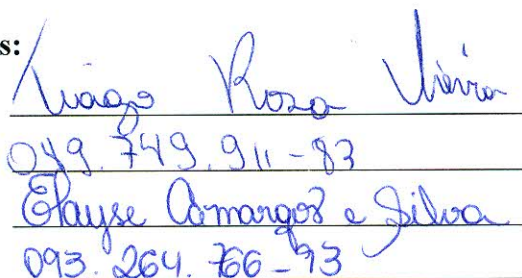 s:
Tiago Rosa Vieira
049.749.911-83
Elayse Camargos e Silva
093.264.766-93